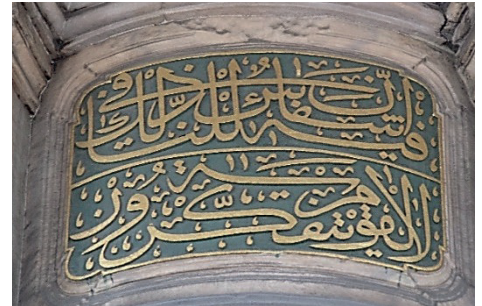 فِيهِ شِفَاءٌ لِلنَّاسِ إِنَّ فِي ذَلِكَ
لَآيَةً لِقَوْمٍ يَتَفَكَّرُونَ